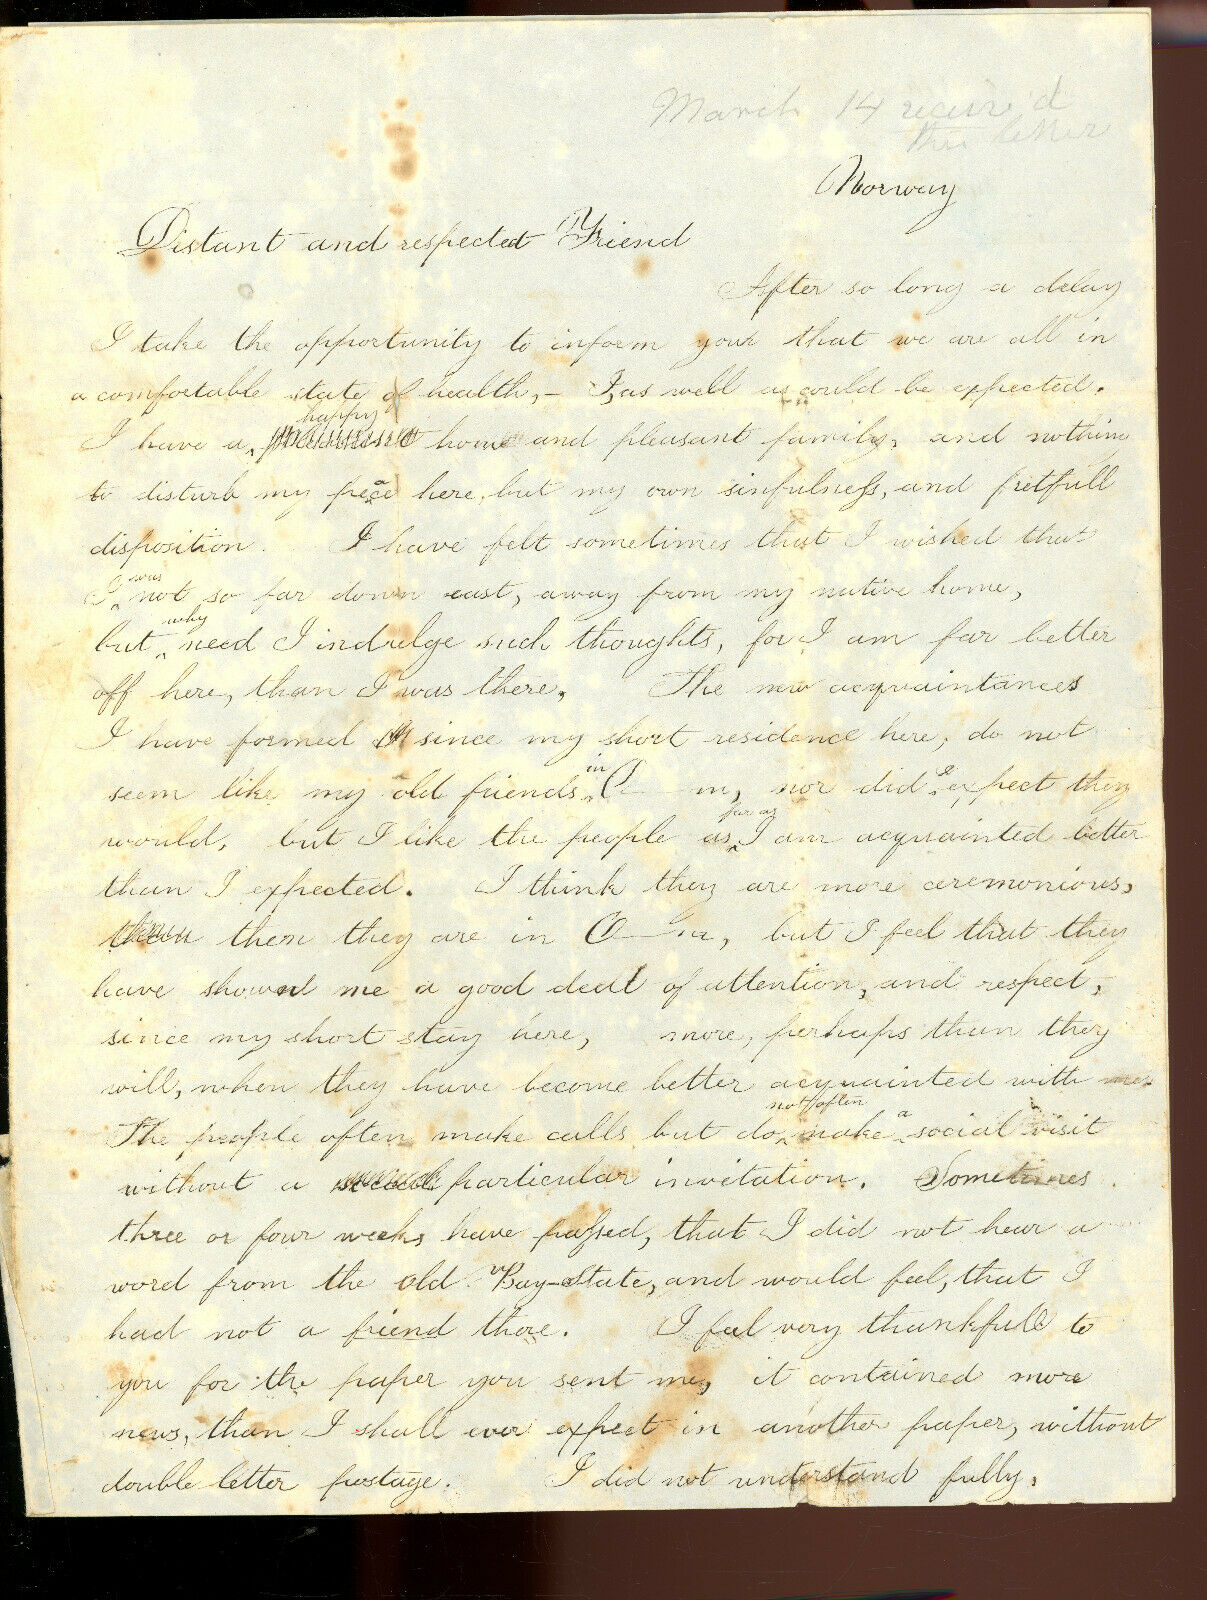 March 14 receiv'd
this letter
Norway
Distant and respected Friend
After so long a delay
I take the opportunity to inform your that we are all in
a comfortable state of health,- I, as well as could be expected.
I have a happy home and pleasant family, and nothing
to disturb my peace here, but my own sinfulness, and fretfull
disposition. I have felt sometimes that I wished that
I was not so far down east, away from my native home,
but why need I indulge such thoughts, for I am far better
off here, than I was there. The new acquaintances
I have formed since my short residence here, do not
seem like my old friends in O—m, nor did I expect they
would, but I like the people as far as I am acquainted better
than I expected. I think they are more ceremonious,
then they are in O—m, but I feel that they
have showed me a good deal of attention, and respect,
since my short stay here, more, perhaps than they
will, when they have become better acquainted with me.
The people often make calls but do not often make a social visit
without a particular invitation. Sometimes
three or four weeks have passed, that I did not hear a
word from the old Bay-State, and would feel, that I
had not a friend there. I feel very thankfull to
you for the paper you sent me, it contained more
news, than I shall ever expect in another paper, without
double letter postage. I did not understand fully,